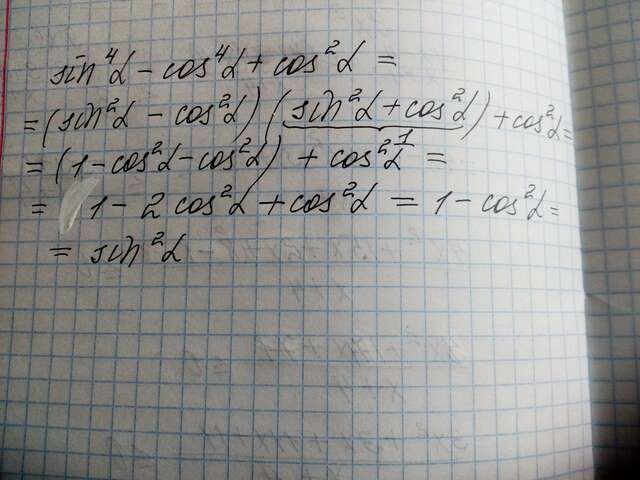 sin⁴α - cos⁴α + cos²α =
= (sin²α - cos²α) (sin²α + cos²α) + cos²α =
1
= (1 - cos²α - cos²α) + cos²α =
= 1 - 2 cos²α + cos²α = 1 - cos²α =
= sin²α